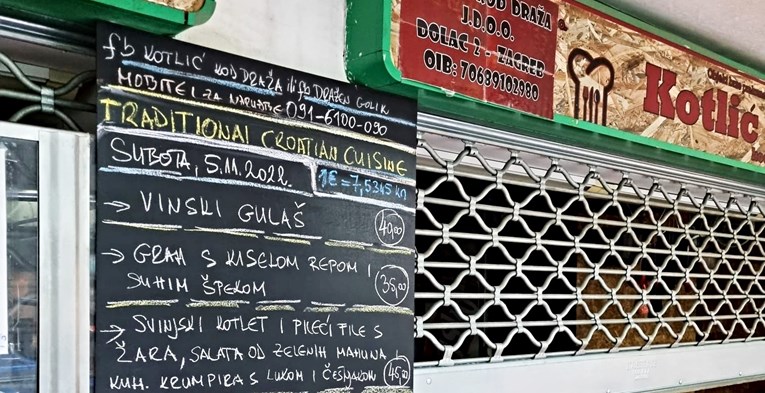 fb KOTLIĆ KOD DRAŽA ili fb DRAŽEN GOLIK
MOBITEL ZA NARUDŽBE 091-6100-090
TRADITIONAL CROATIAN CUISINE
SUBOTA, 5.11.2022.
1€ = 7,5345 kn
→ VINSKI GULAŠ 40,00
→ GRAH S KISELOM REPOM I
SUHIM ŠPEKOM 35,00
→ SVINJSKI KOTLET I PILEĆI FILE S
ŽARA, SALATA OD ZELENIH MAHUNA
KUH. KRUMPIRA S LUKOM I ČEŠNJAKOM 45,00
KOD DRAŽA
J.D.O.O.
DOLAC 2 - ZAGREB
OIB: 70689102980
Kotlić